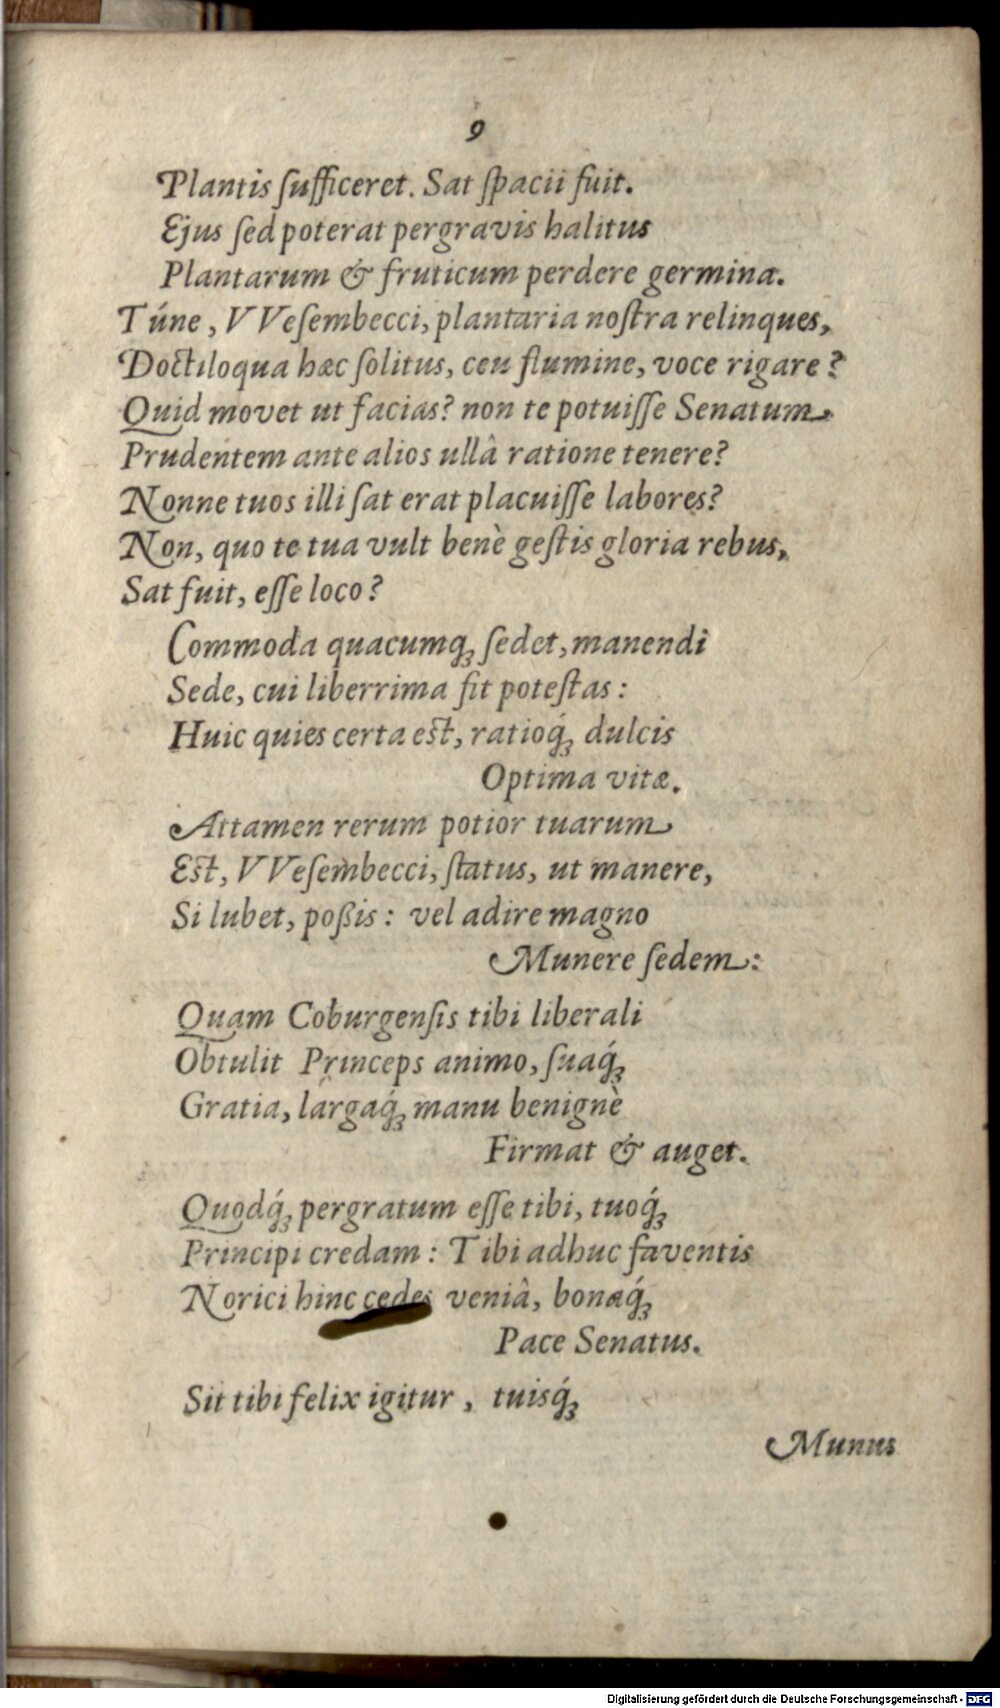 9
Plantis ſufficeret. Sat ſpacii fuit.
Ejus ſed poterat pergravis halitus
Plantarum & fruticum perdere germina.
Túne, VVeſembecci, plantaria noſtra relinques,
Doctiloqua hæc ſolitus, ceu flumine, voce rigare?
Quid movet ut facias? non te potuiſſe Senatum
Prudentem ante alios ullâ ratione tenere?
Nonne tuos illi ſat erat placuiſſe labores?
Non, quo te tua vult benè geſtis gloria rebus,
Sat fuit, eſſe loco?
Commoda quacumq́ꝫ ſedet, manendi
Sede, cui liberrima ſit poteſtas:
Huic quies certa est, ratioq́ꝫ dulcis
Optima vitæ.
Attamen rerum potior tuarum
Est, VVeſembecci, ſtatus, ut manere,
Si lubet, poßis: vel adire magno
Munere ſedem:
Quam Coburgenſis tibi liberali
Obtulit Princeps animo, ſuaq́ꝫ
Gratia, largaq́ꝫ manu benignè
Firmat & auget.
Quodq́ꝫ pergratum eſſe tibi, tuoq́ꝫ
Principi credam: Tibi adhuc faventis
Norici hinc cedes veniâ, bonaq́ꝫ
Pace Senatus.
Sit tibi felix igitur, tuisq́ꝫ
Munus
Digitalisierung gefördert durch die Deutsche Forschungsgemeinschaft - DFG